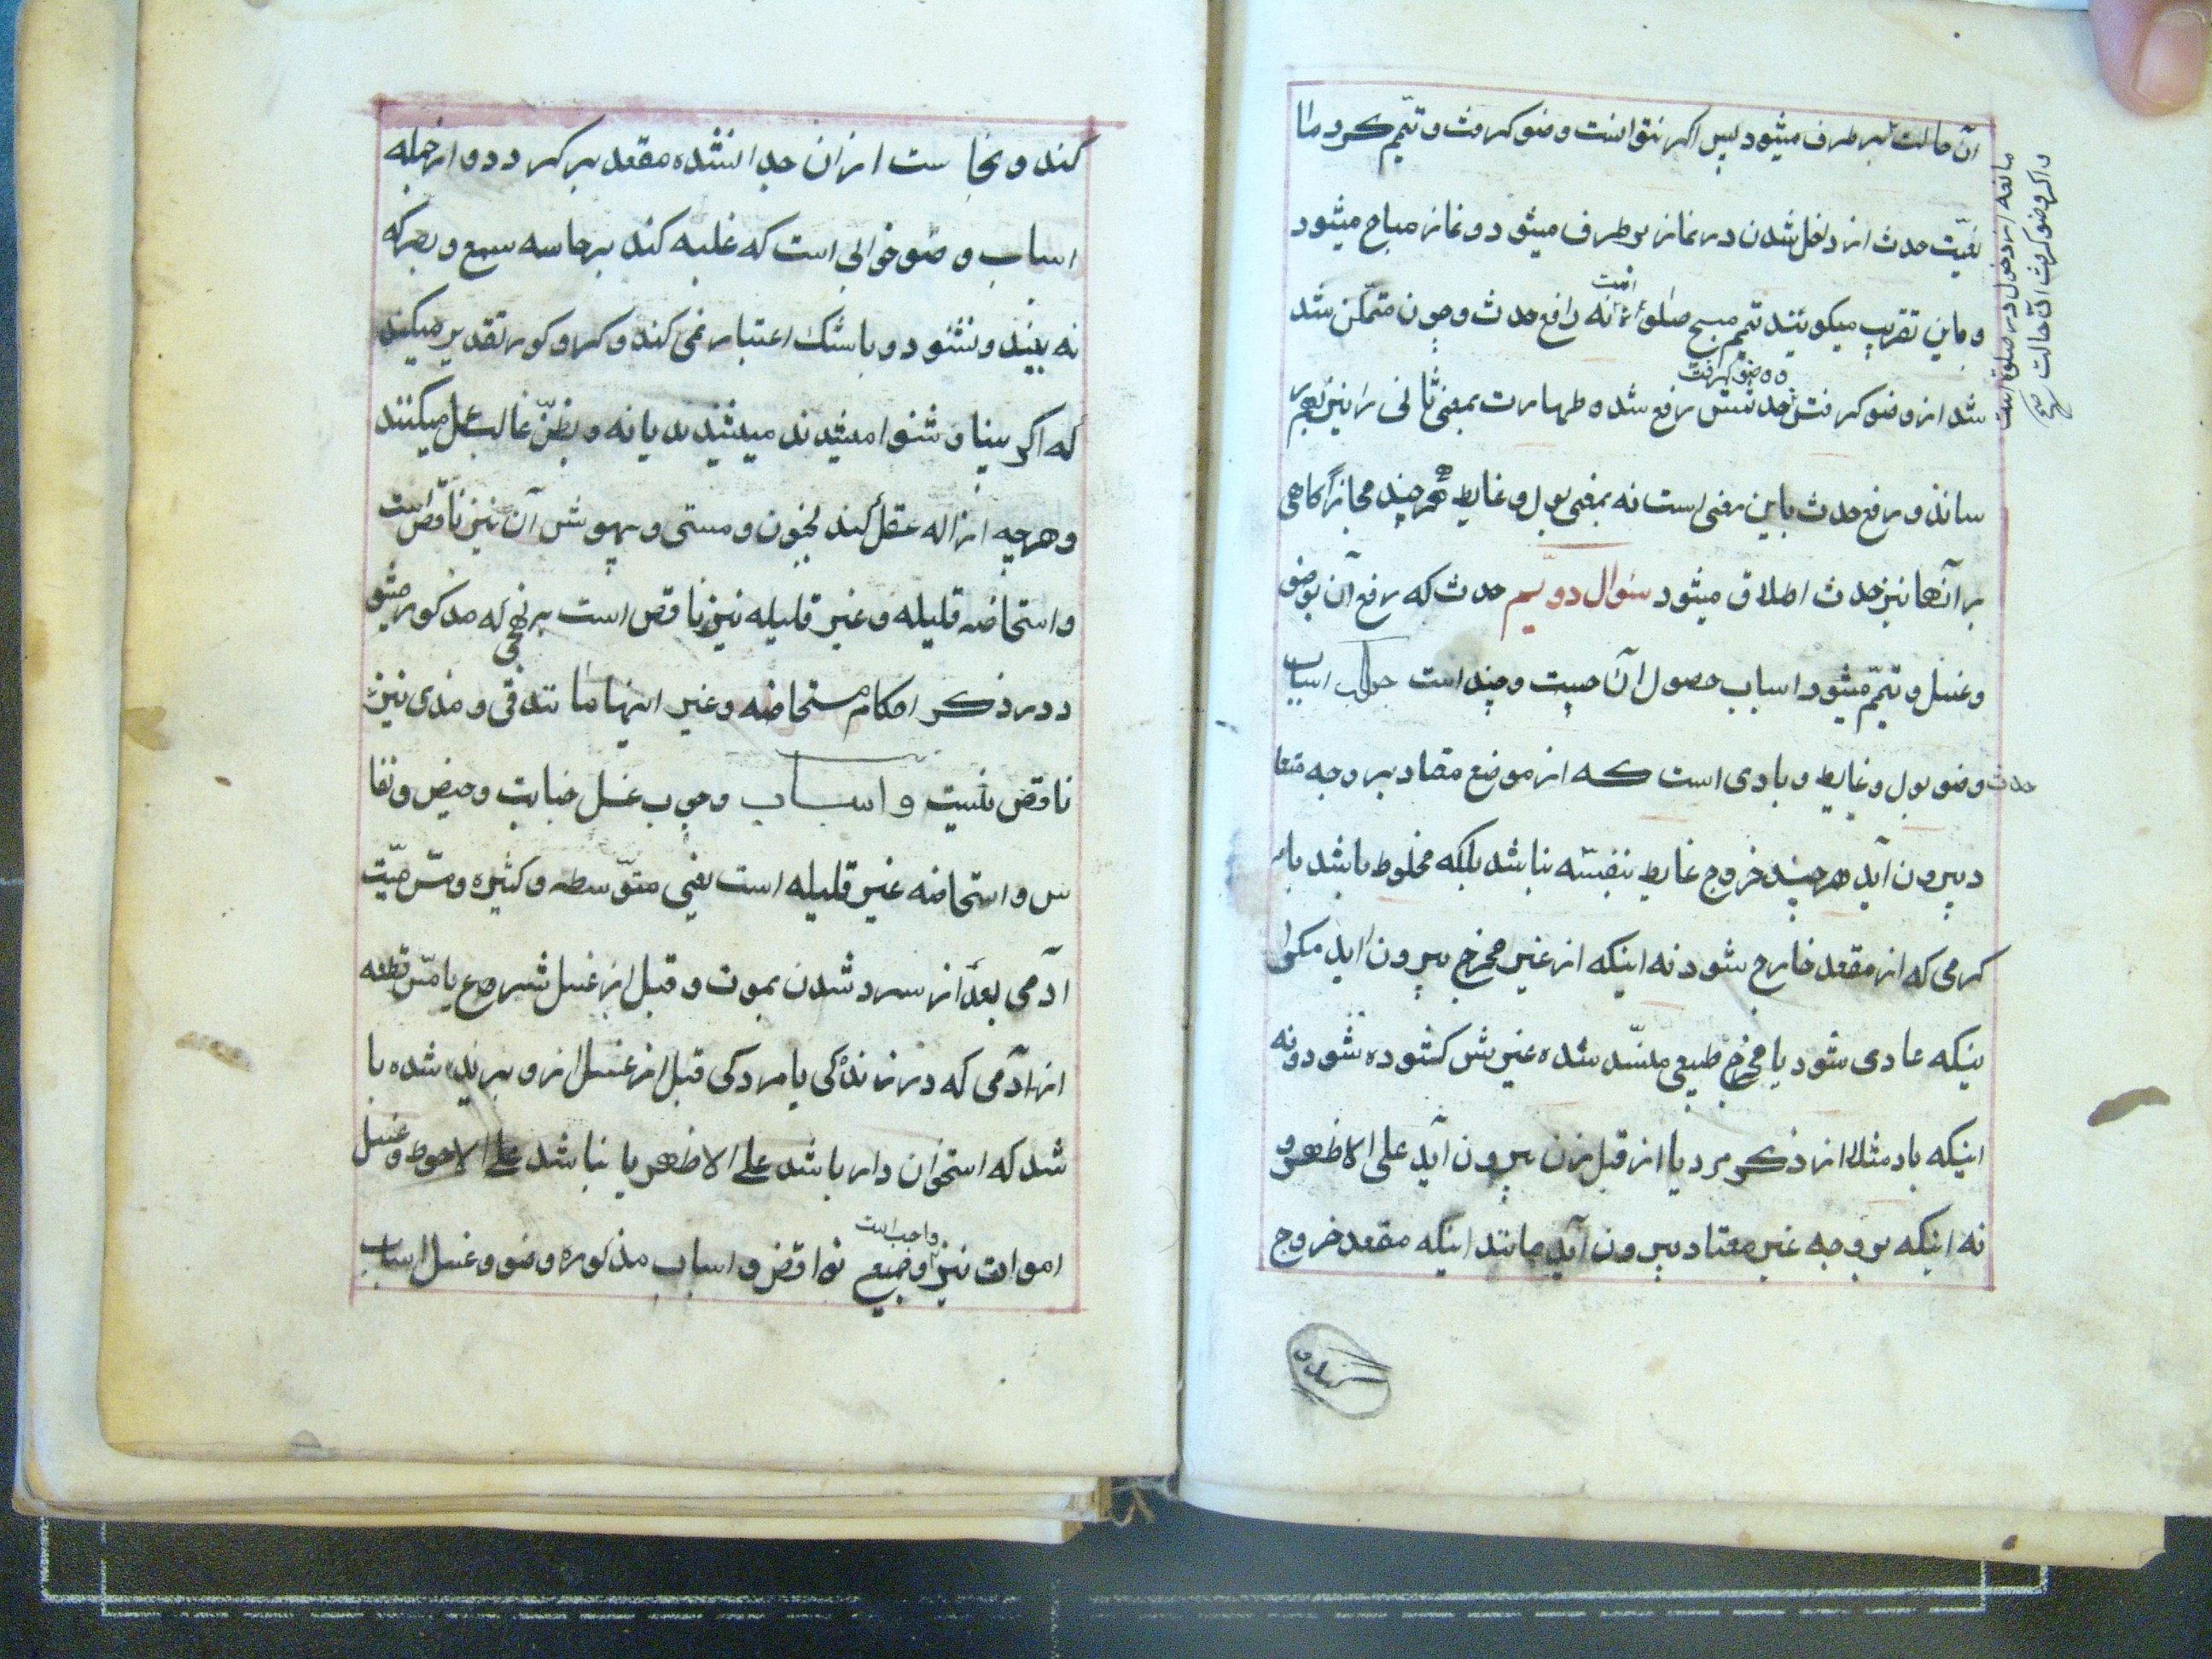 آن حالت برطرف میشود پس اکر نتوانست وضو کرفت و تیمّم کرد ما
نعیّت حدث از داخل شدن در نماز برطرف میشود و نماز مباح میشود
و باین تقریب میکویند تیمم مبیح صلوة است نه رافع حدث و چون متمکّن شد
شد از وضو کرفتن و وضو کرفت حدثش رفع شده طهارت بمعنی ثانی را نیز بهم
ساند و رفع حدث باین معنی است نه بمعنی بول و غایط هرچند مجازاً کاهی
بر آنها نیز حدث اطلاق میشود سئوال دویّم حدث که رفع آن بوضو
و غسل و تیمّم میشود اسباب حصول آن چیست و چند است جواب اسباب
حدث وضو بول و غایط و بادی است که از موضع معتاد بر وجه متعا
د بیرون آید هرچند خروج غایط بنفسه نباشد بلکه مخلوط باشد با
کرمی که از مقعد خارج شود نه اینکه از غیر مخرج بیرون اید مکر ا
ینکه عادی شود یا مخرج طبیعی منسّد شده غیرش کشوده شود و نه
اینکه باد مثلا از ذکر مرد یا از قبل زن بیرون آید علی الاظهر و
نه اینکه بر وجه غیر معتاد بیرون آید مانند اینکه مقعد خروج
مانعه از دخول در صلوة است
و اکر وضو کرفت آن حالت
کند و نجاست از ان جدا نشده مقعد برکردد و از جمله
اسباب وضو خوابی است که غلبه کند بر حاسه سمع و بصر که
نه بیند و نشنود و با شک اعتبار نمی کند و کر و کور تقدیر میکنند
که اکر بینا و شنوا میبودند میشنیدند یا نه و بظنّ غالب عمل میکنند
و هرچه ازاله عقل کند چون جنون و مستی و بیهوشی آن نیز ناقض است
و استحاضه قلیله و غیر قلیله نیز ناقص است بر نهجی که مذکور میشو
د در ذکر احکام مستحاضه و غیر اینها مانند قی و مذی نیز
ناقض نیست و اسباب وجوب غسل جنابت و حیض و نفا
س و استحاضه غیر قلیله است یعنی متوّسطه و کثیره و مسّ میّت
آدمی بعد از سرد شدن بموت و قبل از غسل مشروع یا مسّ قطعه
از آدمی که در زندکی یا مردکی قبل از غسل از و بریده شده با
شد که استخوان دار باشد علی الاظهر یا نباشد علی الاحوط و غسل
اموات نیز واجب است و جمیع نواقض و اسباب مذکوره وضو و غسل اسباب